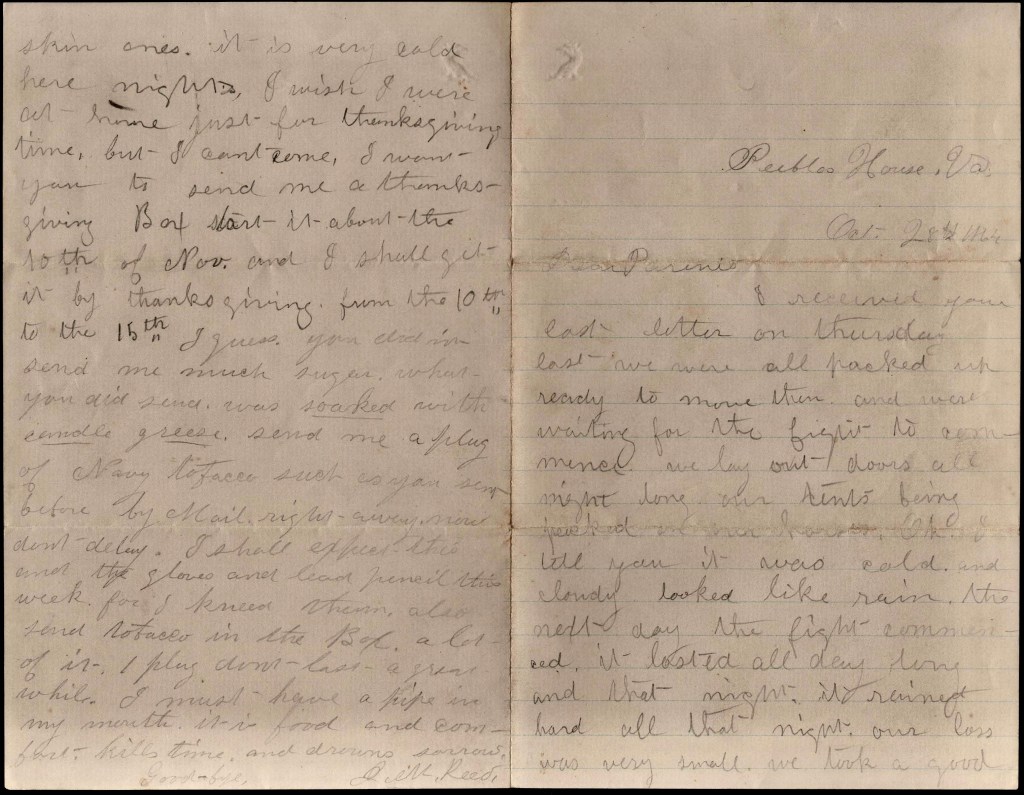 Peebles House, Va.
Oct. 29th 1864
Dear Parents
I received your
last letter on thursday
last we were all packed up
ready to move then. and were
waiting for the fight to com-
mence. we lay out doors all
night long our tents being
packed on our horses. Oh! I
tell you it was cold. and
cloudy looked like rain. the
next day the fight commen-
ced. it lasted all day long
and that night. it rained
hard all that night. our loss
was very small. we took a good
skin ones. it is very cold
here nights, I wish I were
at home just for thanksgiving
time, but I cant come, I want
you to send me a thanks-
giving Box start it about the
10th of Nov. and I shall get
it by thanksgiving. from the 10th
to the 15th I guess. you did in
send me much sugar. what
you did send. was soaked with
candle greese. send me a plug
of Navy tobacco such as you sent
before by Mail. right away now
dont delay. I shall expect this
and the gloves and lead pencil this
week. for I kneed them. also
send tobacco in the Box. a lot
of it. 1 plug dont last a great
while. I must have a pipe in
my mouth. it is food and com-
fort. kills time. and drowns sorrow.
Good-bye, Reed,